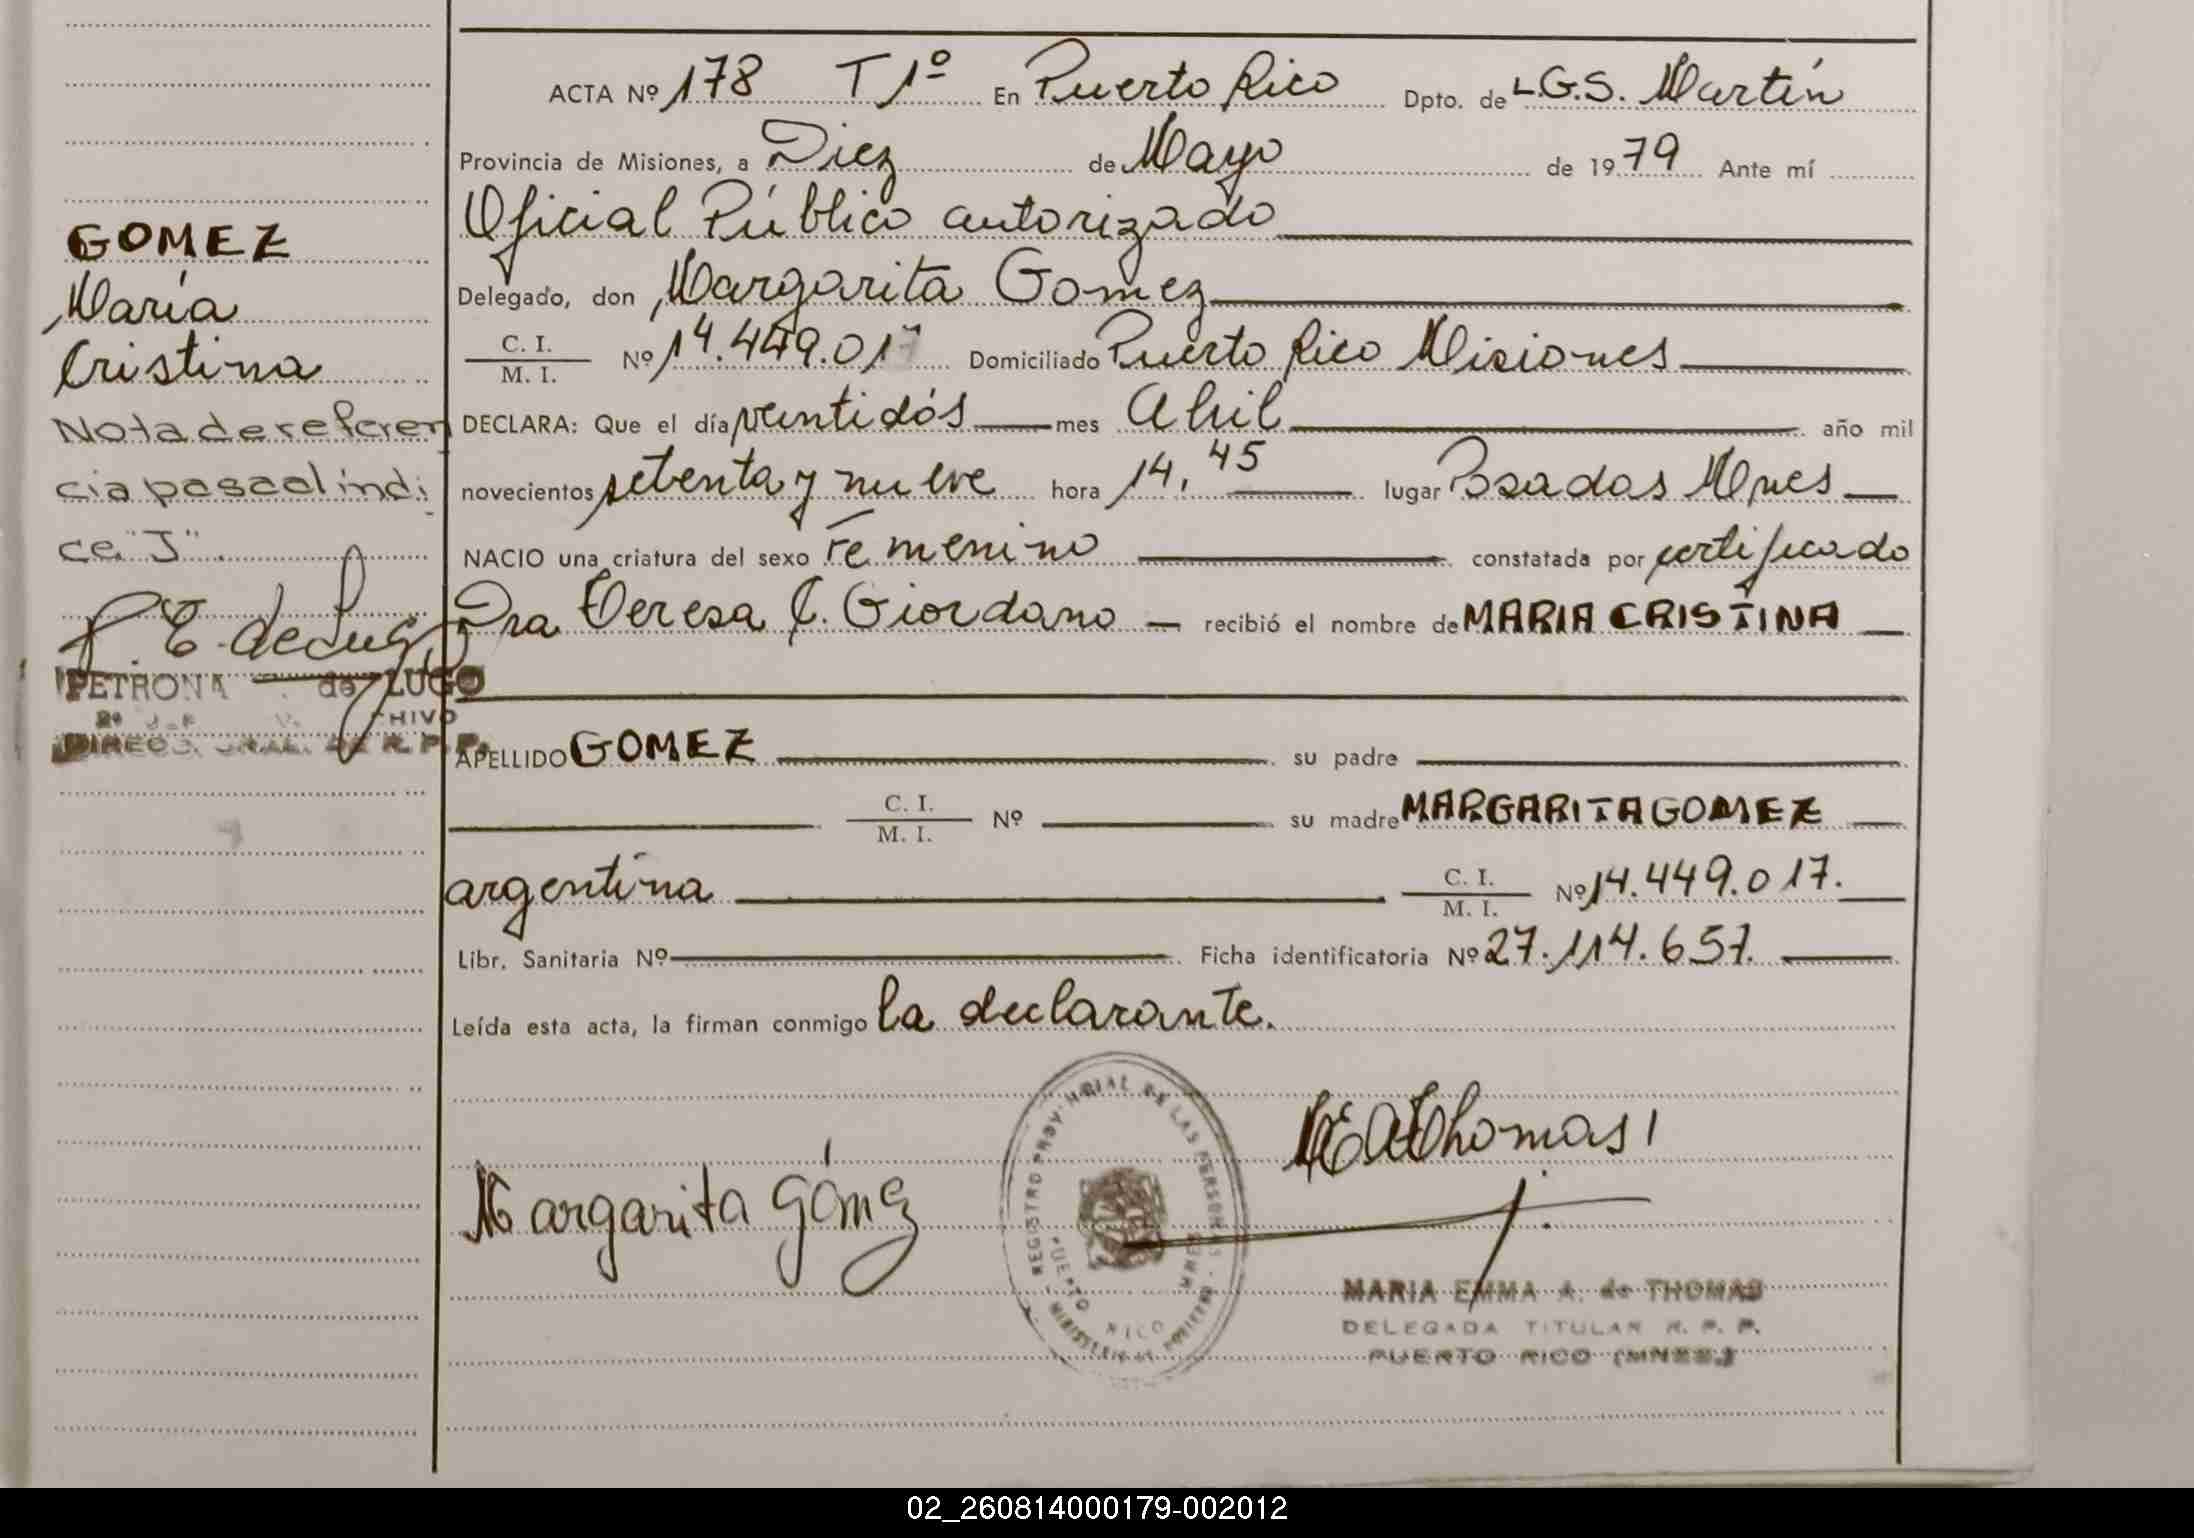 ACTA Nº 178 T 1º En Puerto Rico Dpto. de L.G.S. Martín
Provincia de Misiones, a Diez de Mayo de 1979 Ante mí
Oficial Público autorizado
Delegado, don Margarita Gomez
C. I.
M. I.
Nº 14.449.017 Domiciliado Puerto Rico Misiones
DECLARA: Que el día veintidós mes Abril año mil
novecientos setenta y nueve hora 14,45 lugar Posadas Mnes
NACIO una criatura del sexo Femenino constatada por certificado
Dra Teresa C. Giordano recibió el nombre de MARIA CRISTINA
APELLIDO GOMEZ su padre
C. I.
M. I.
Nº su madre MARGARITA GOMEZ
argentina
C. I.
M. I.
Nº 14.449.017.
Libr. Sanitaria Nº Ficha identificatoria Nº 27.114.657.
Leída esta acta, la firman conmigo la declarante.
GOMEZ
María
Cristina
Nota de referen
cia pasa al indi
ce "J"
P. E. de Lugo
PETRONA de LUGO
CHIVO
DIREC. GRAL. DE R. P. P.
Margarita Gómez
REGISTRO PROVINCIAL DE LAS PERSONAS
MINISTERIO DE GOBIERNO
PUERTO RICO MNES
MEAThomas
MARIA EMMA A. de THOMAS
DELEGADA TITULAR R. P. P.
PUERTO RICO (MNES.)
02_260814000179-002012